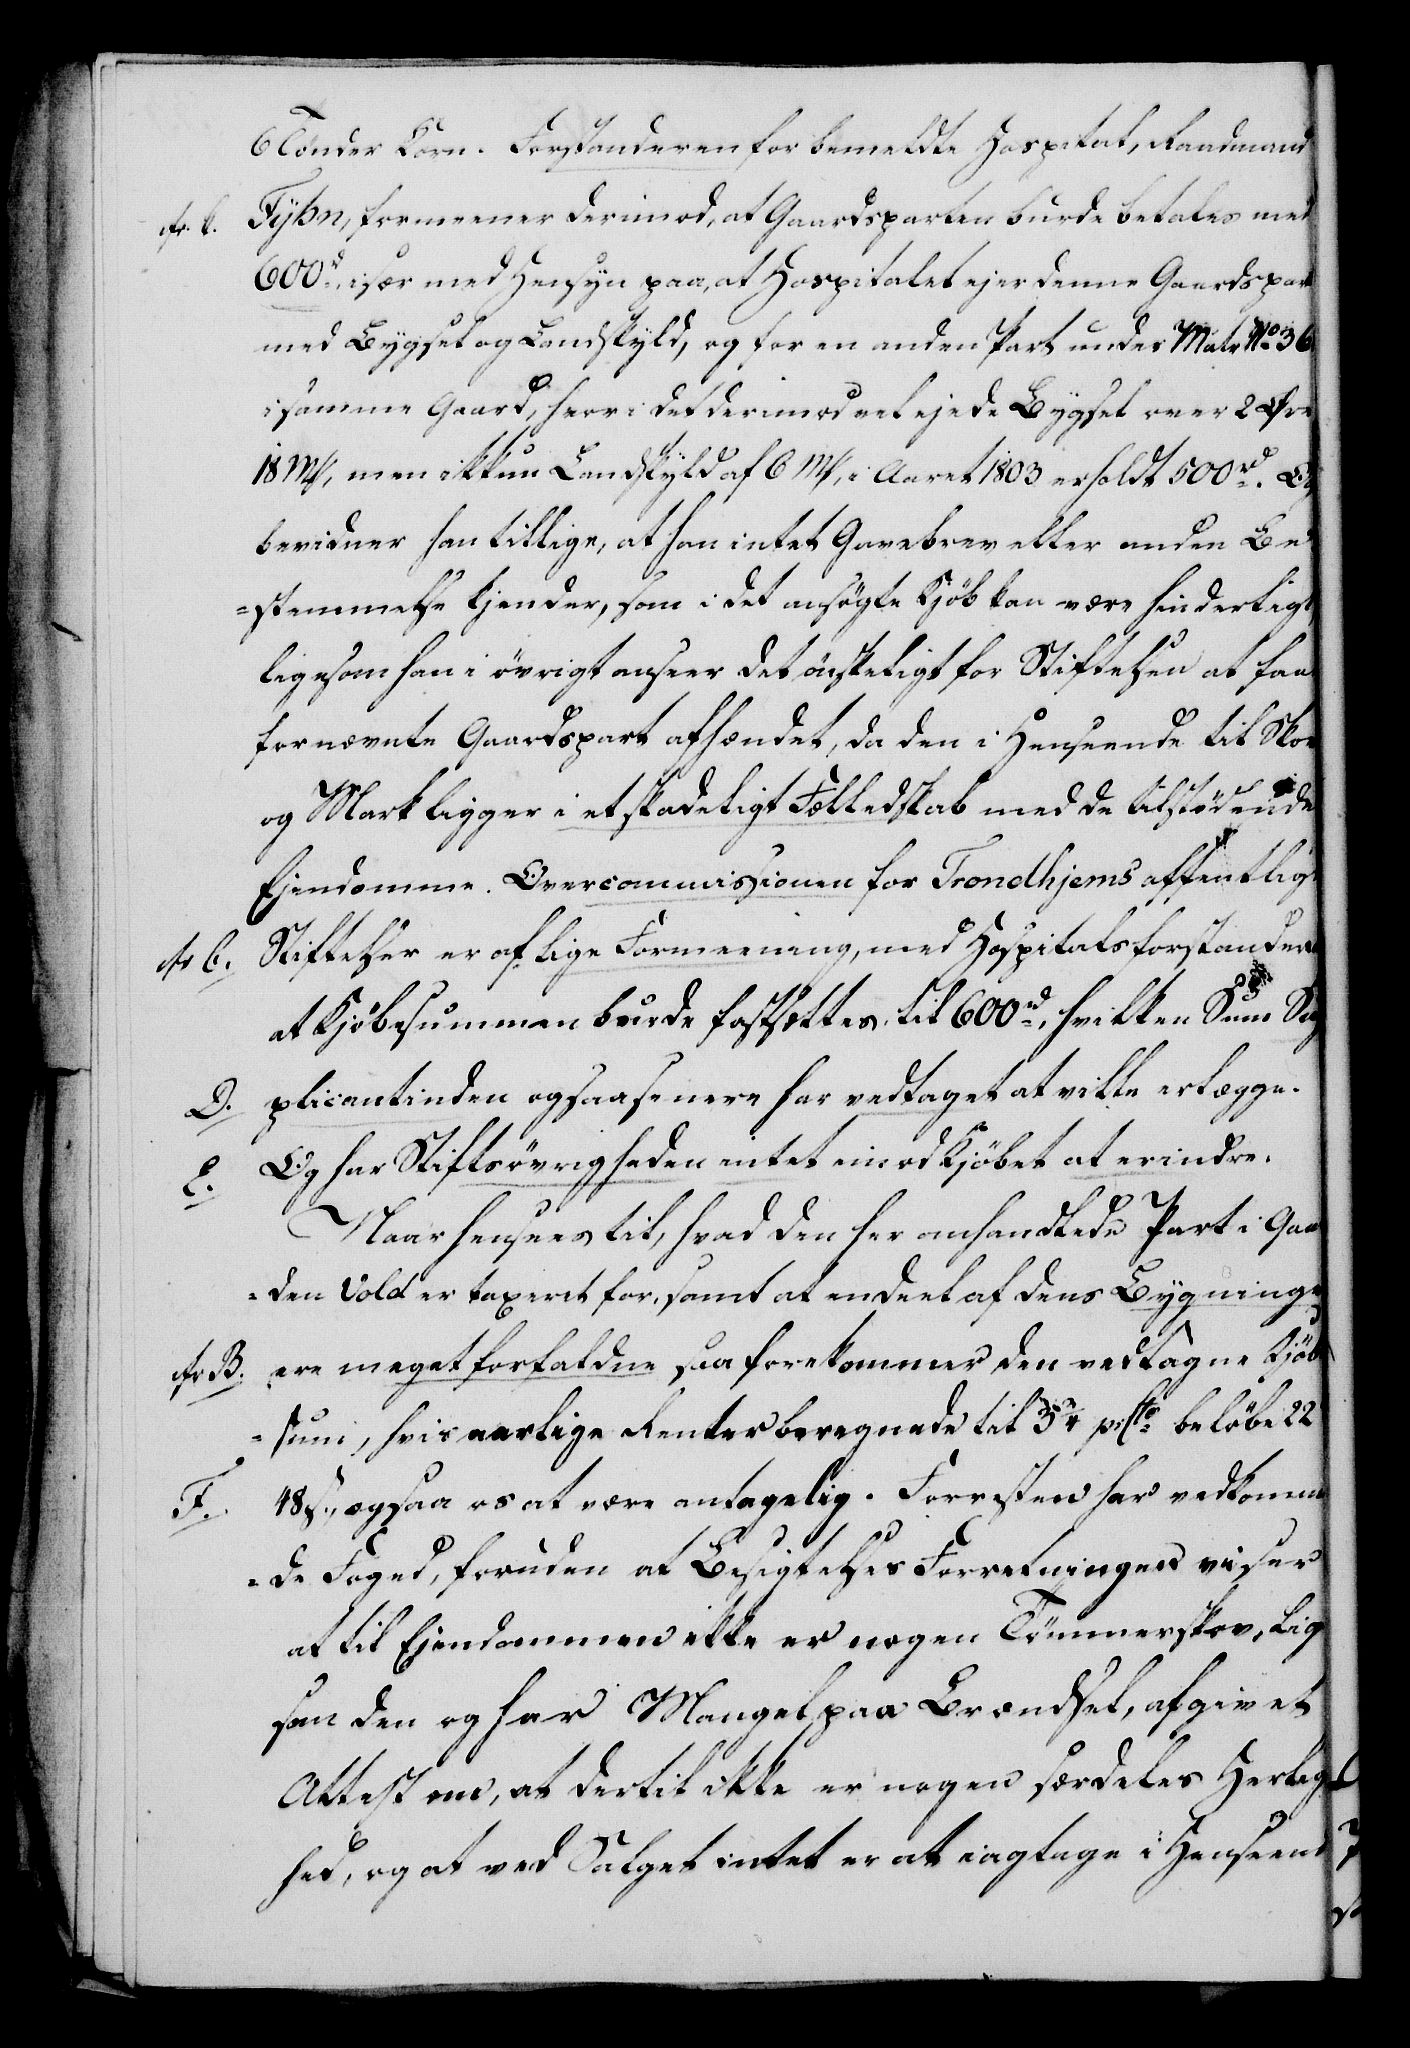 6 Tönder Korn. Forstanderen for bemeldte Hospital, Raadmand
cfr. C. Fyhn, formeener derimod, at Gaardsparten burde betales med
600rd, især med Hensyn paa, at Hospitalet ejer denne Gaardspart
med Bygsel og Landskyld, og for en anden Part under Matr No 36
i samme Gaard, hvori det derimod vel ejede Bygsel over 2 Øre
18 Mk, men ikkun Landskyld af 6 Mk, i Aaret 1803 erholdt 500rd. Og
bevidner han tillige, at han intet Gavebrev eller anden Be
=stemmelse kjender, som i det ansøgte Kjöb kan være hinderligt
ligesom han i övrigt anseer det önskeligt for Stiftelsen at faae
fornævnte Gaardspart afhændet, da den i Henseende til Skov
og Mark ligger i et skadeligt Fælledskab med de tilstödende
Ejendomme. Overcommissionen for Trondhjems offentlige
cfr C. Stiftelser er af lige Formeening, med Hospitalsforstanderen
at Kjöbesummen burde fastsættes til 600rd, hvilken Sum Sup
D. plicantinden ogsaa senere har vedtaget at ville erlægge.
E. Og har Stiftsövrigheden intet imod Kjöbet at erindre.
Naar hensees til, hvad den her omhandlede Part i Gaar
=den Vold er taxeret for, samt at endeel af dens Bygninger
cfr B. ere meget forfaldne saa forekommer den vedtagne Kjöbe
=sum, hvis aarlige Renter beregnede til 3¾ pCto belöbe 22
F. 48 s, ogsaa os at være antagelig. Forresten har vedkommen
=de Foged, foruden at Besigtelses Forretningen viser
at til Ejendommen ikke er nogen Tömmerskov, lige
som den og har Mangel paa Brændsel, afgivet
Attest om, at dertil ikke er nogen særdeles Herlig
hed, og at ved Salget intet er at iagtage i Henseende